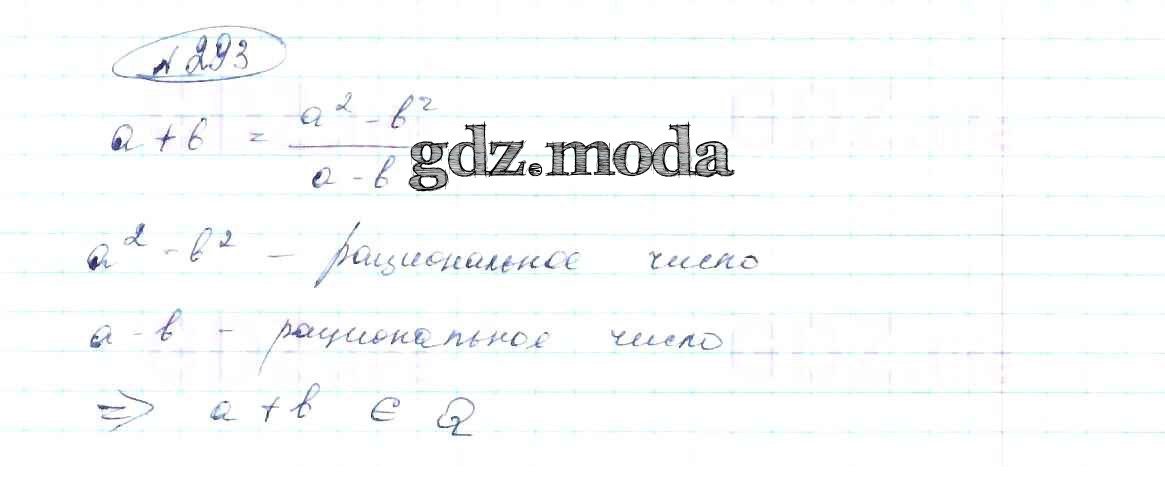 №293
a + b = \frac{a² - b²}{a - b}
gdz.moda
a² - b² - рациональное число
a - b - рациональное число
⇒ a + b ∈ Q